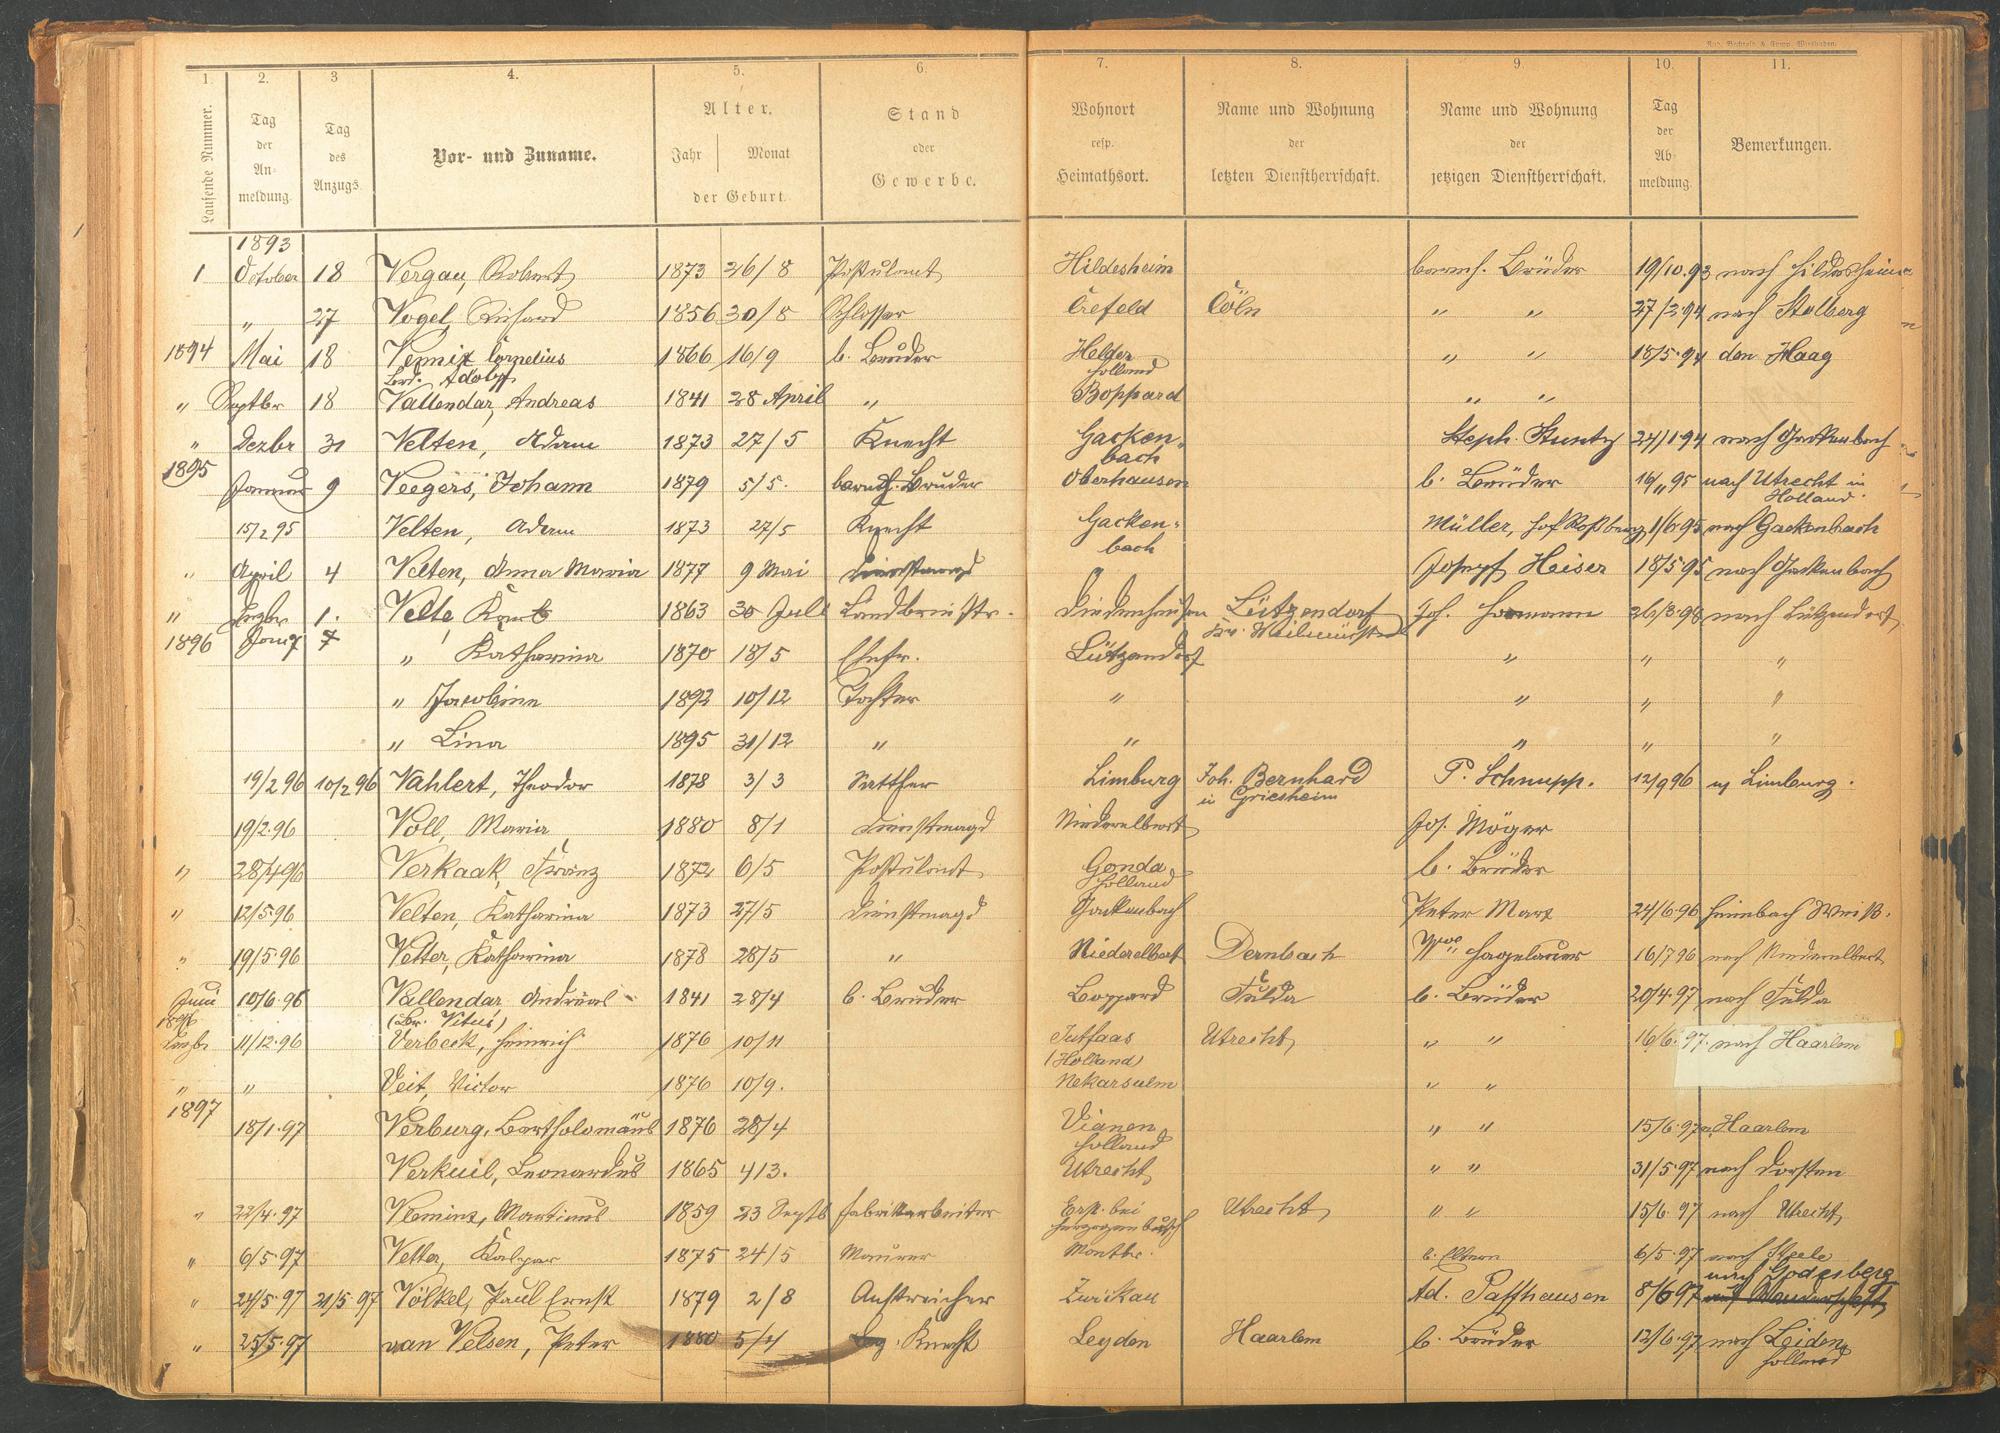 Rud. Bechtold & Comp. Wiesbaden.
1. 2. 3 4. 5. 6. 7. 8. 9. 10. 11.
Laufende Nummer. Tag der Anmeldung. Tag des Anzugs. Vor- und Zuname. Alter. Jahr Monat der Geburt. Stand oder Gewerbe. Wohnort resp. Heimathsort. Name und Wohnung der letzten Dienstherrschaft. Name und Wohnung der jetzigen Dienstherrschaft. Tag der Abmeldung. Bemerkungen.
1893
1 October 18 Vergau, Robert 1873 26/8 Postulant Hildesheim barmh. Brüder 19/10.93 nach Hildesheim
" 27 Vogel, Richard 1856 30/8 Schlosser Crefeld Cöln " " 27/2.94 nach Stolberg
1894 Mai 18 Cornelius 1866 16/9 b. Bruder Helder " " 18/5.94 den Haag
Brd. Adolph Holland
" Septbr 18 Vallendar, Andreas 1841 28 April " Boppard " "
" Dezbr 31 Velten, Adam 1873 27/5 Knecht Gacken- Steph. Stuntz 24/1 94 nach Gackenbach
bach
1895 Januar 9 Veegers, Johann 1879 5/5. barmh. Bruder Oberhausen b. Brüder 16/11 95 nach Utrecht in
Holland.
15/2 95 Velten, Adam 1873 27/5 Knecht Gacken- Müller, Hof Roßberg 1/6 95 nach Gackenbach
bach
" April 4 Velten, Anna Maria 1877 9 Mai Dienstmagd Joseph Heiser 18/5 95 nach Gackenbach
" Dezbr 1. Velte, 1863 30 Juli Diedenhausen Lützendorf Joh. nach Lützendorf
Kr. Weilmünster
1896 Jan 7 " Katharina 1870 18/5 Ehefr. Lützendorf " " "
" Jacobine 1892 10/12 Tochter " " " "
" Lina 1895 31/12 " " " " "
19/2 96 10/2 96 Vahlert, Theodor 1878 3/3 Sattler Limburg Joh. Bernhard P. Schnupp. 12/9 96 n. Limburg.
in Griesheim
19/2.96 Voll, Maria 1880 8/1 Dienstmagd Niederelbert Jos. Möger
" 28/4 96 Verkaak, Franz 1872 6/5 Postulant Gonda b. Brüder
Holland
" 12/5.96 Velten, Katharina 1873 27/5 Dienstmagd Gackenbach Peter Marx 24/6.96
" 19/5.96 Vetter, Katharina 1878 28/5 " Niederelbert Dernbach Wwe Hagelauer 16/7 96 nach Niederelbert
Juni 10/6.96 Vallendar Andreas 1841 28/4 b. Bruder Boppard Fulda b. Brüder 20/4.97 nach Fulda
1896 (Br. Vitus)
Dezbr 11/12.96 Verbeck, Heinrich 1876 10/11 Jutfaas Utrecht " " 16/6.97 nach Haarlem
(Holland)
" " Veit, Victor 1876 10/9. Nekarsulm " "
1897
18/1.97 Verburg, Bartholomäus 1876 28/4 Vianen " " 15/6.97 n. Haarlem
Holland
Verkuil, Leonardus 1865 4/3. Utrecht " " 31/5.97 nach Dorsten
" 22/4.97 Martinus 1859 23 Septb Fabrikarbeiter Erp. bei Utrecht " " 15/6.97 nach Utrecht
Herzogenbusch
" 6/5.97 Vetter, Kaspar 1875 24/5 Maurer Montbr. b. Eltern 6/5.97 nach Steele
nach Godesberg
" 24/5.97 21/5.97 Völkel, Paul Ernst 1879 2/8 Anstreicher Zwickau Ad. Paffhausen 8/6 97 auf Wanderschaft
" 25/5.97 van Velsen, Peter 1880 5/4 Knecht Leyden Haarlem b. Brüder 12/6.97 nach Leiden
Holland